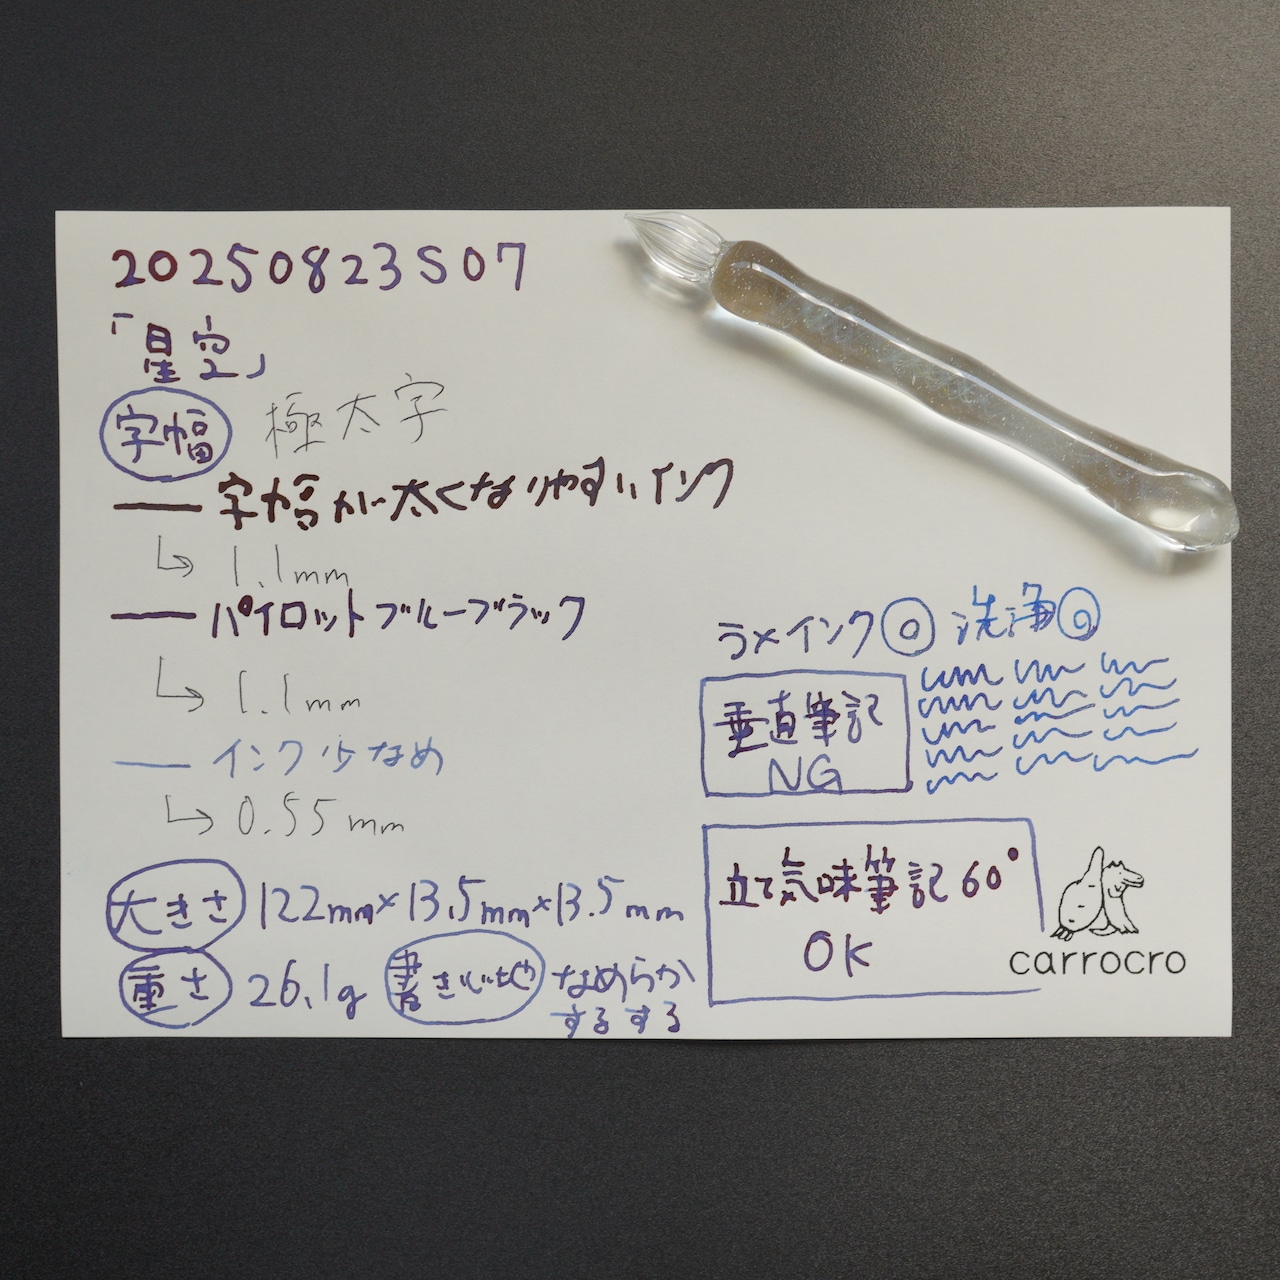 20250823S07
「星空」
字幅 極太字
字幅が太くなりやすいインク
↳ 1.1mm
パイロットブルーブラック
↳ 1.1mm
インク少なめ
↳ 0.55mm
大きさ 122mm×13.5mm×13.5mm
重さ 26.1g 書き心地 なめらか
するする
ラメインク◎ 洗浄◎
垂直筆記
NG
立て気味筆記60°
OK
carrocro